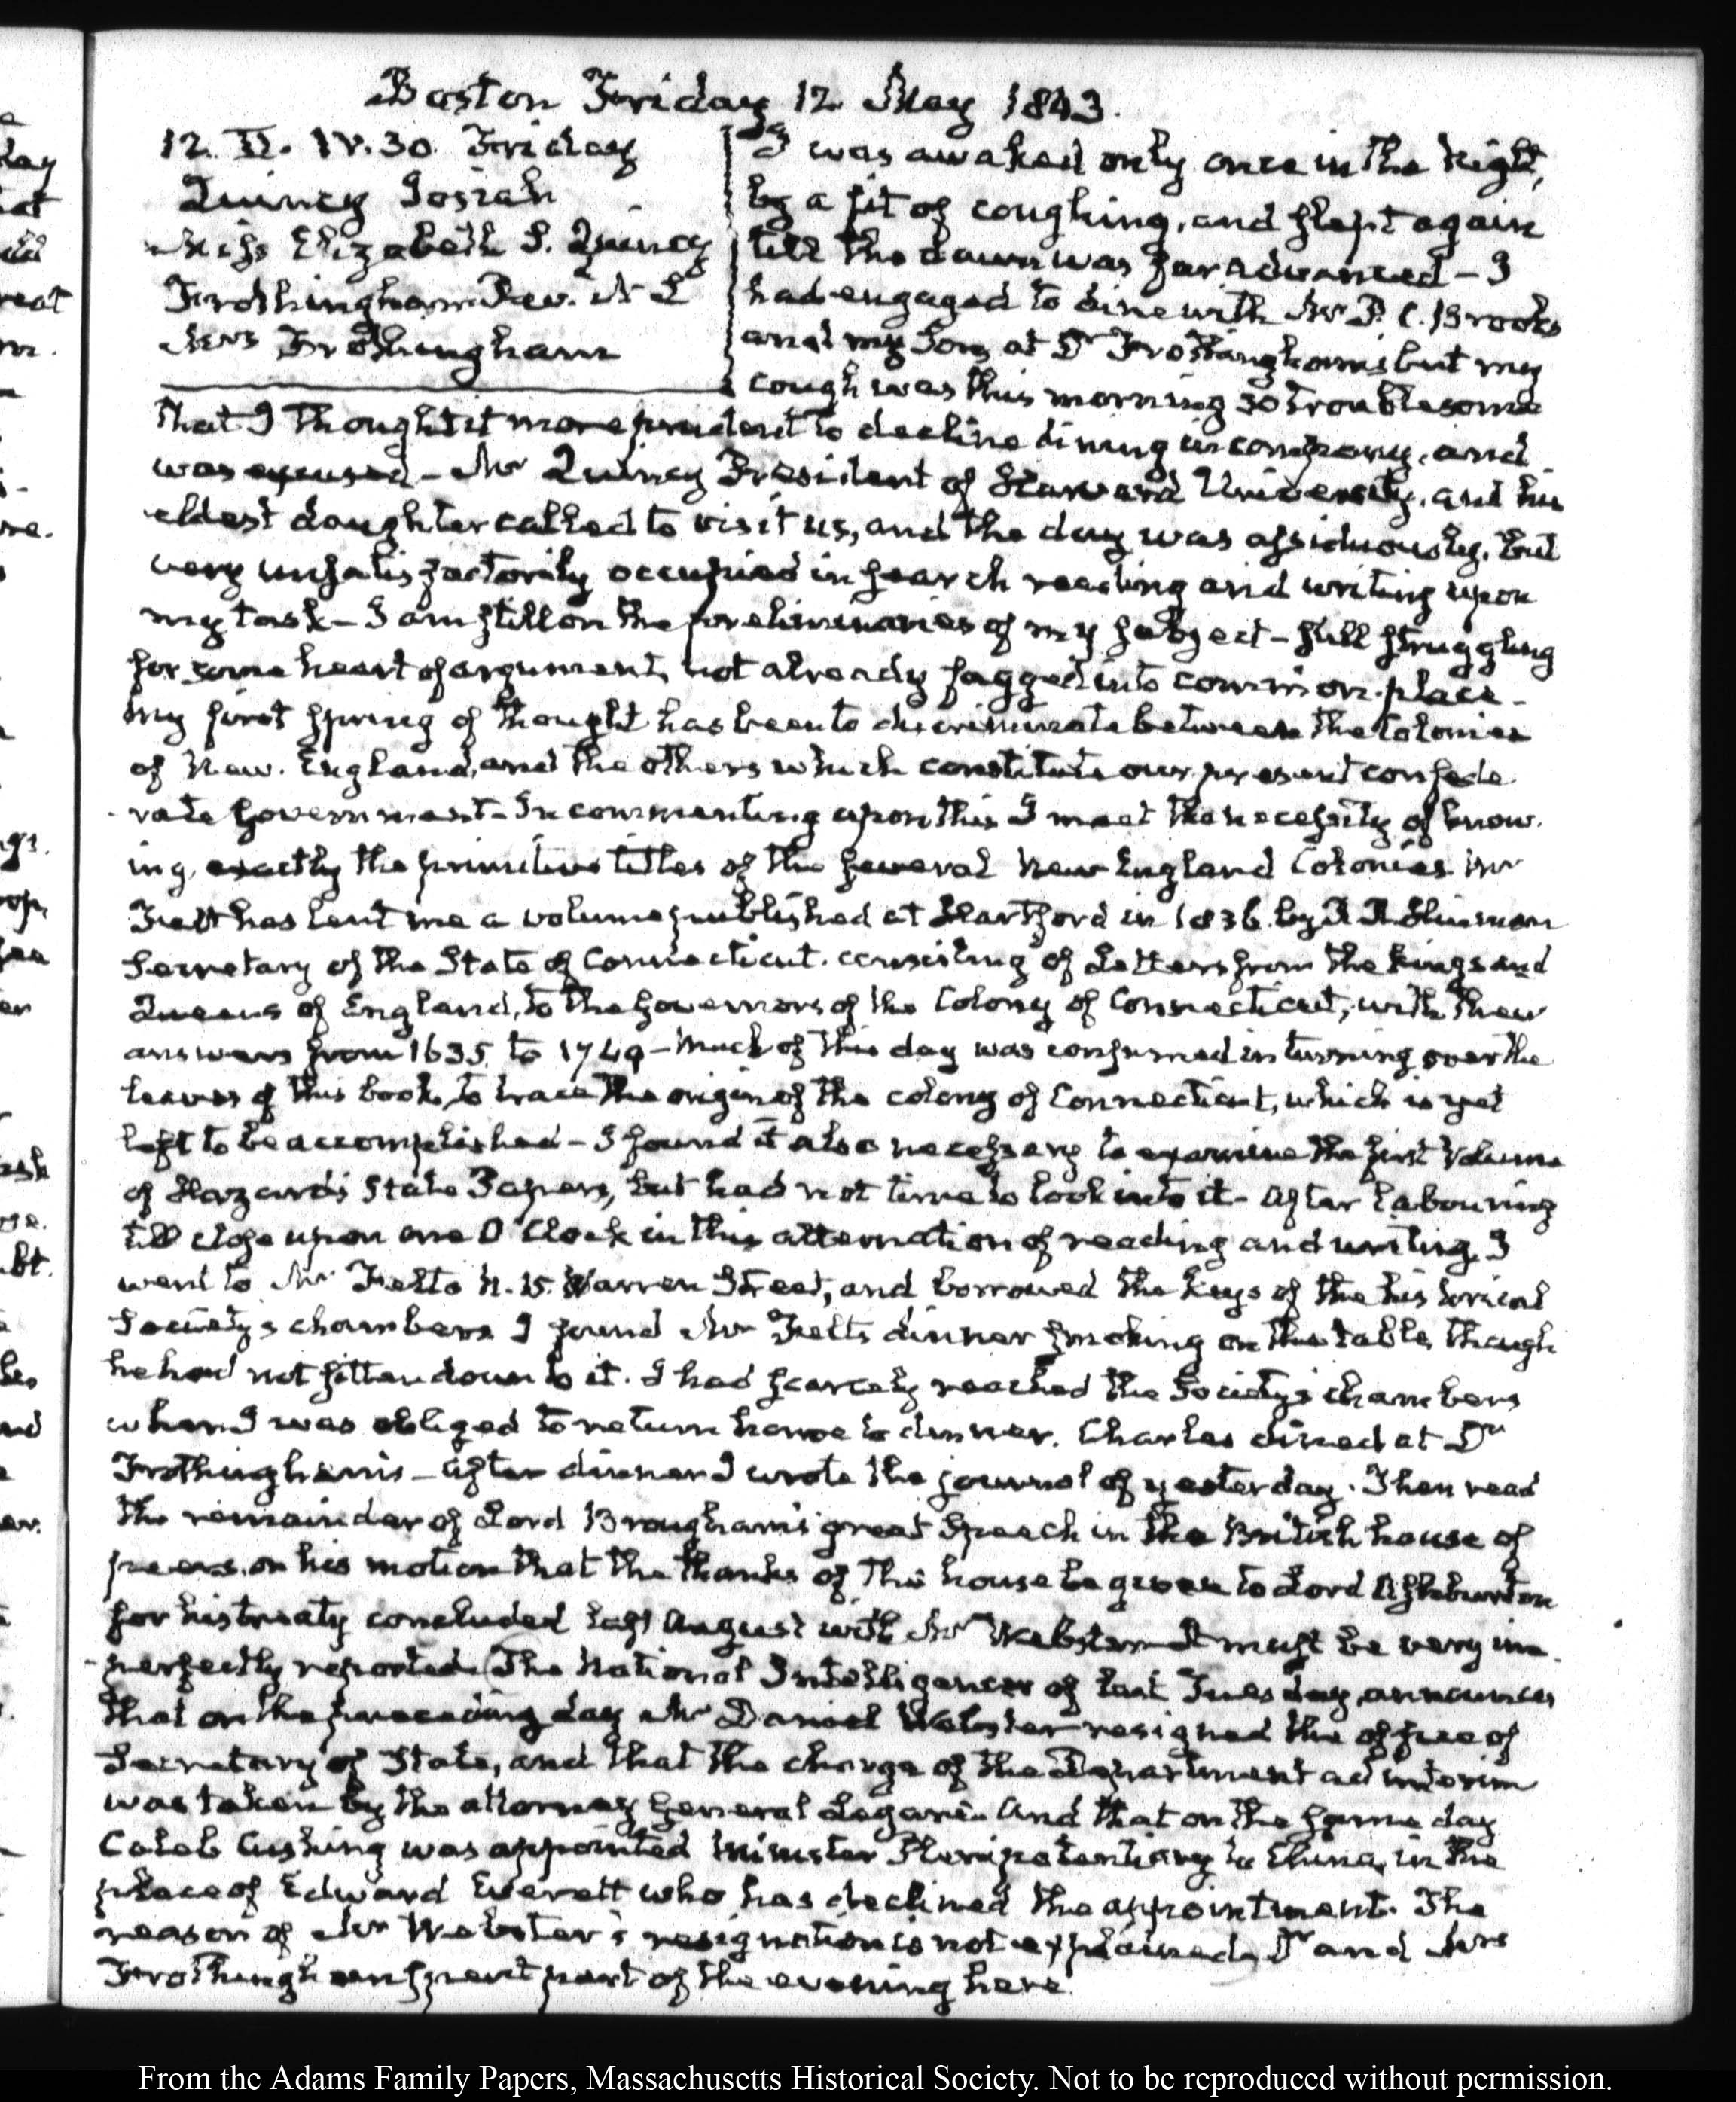 Boston Friday 12 May 1843.
12. II. IV.30. Friday
Quincy Josiah
Miss Elizabeth S. Quincy
Frothingham Rev. N L
Mrs Frothingham
I was awaked only once in the Night,
by a fit of coughing, and slept again
till the dawn was far advanced – I
had engaged to dine with Mr P. C. Brooks
and my Son, at Dr Frothingham's but my
cough was this morning so troublesome
that I thought it more prudent to decline dining in company, and
was excused – Mr Quincy President of Harvard University, and his
eldest daughter called to visit us, and the day was assiduously, but
very unsatisfactorily occupied in search reading and writing upon
my task – I am still on the preliminaries of my subject – still struggling
for some heart of argument, not already fagged into common-place –
My first spring of thought has been to discriminate between the Colonies
of New-England, and the others which constitute our present confede-
rate government – In commenting upon this I meet the necessity of know-
ing, exactly the primitive titles of the several New England Colonies. Mr
Felt has lent me a volume published at Hartford in 1836. by R. R. Hinman
Secretary of the State of Connecticut. consisting of Letters from the Kings and
Queens of England, to the Governors of the Colony of Connecticut, with their
answers from 1635 to 1749 – Much of this day was consumed in turning over the
leaves of this book, to trace the origin of the colony of Connecticut, which is yet
left to be accomplished – I found it also necessary to examine the first Volume
of Hazard's State Papers, but had not time to look into it – After labouring
till close upon one O'Clock in this alternation of reading and writing, I
went to Mr Felt's N. 15. Warren Street, and borrowed the keys of the historical
Society's chambers I found Mr Felt's dinner smoking on the table, though
he had not sitten down to it. I had scarcely reached the Society's chambers
when I was obliged to return home to dinner. Charles dined at Dr
Frothingham's – After dinner I wrote the journal of yesterday. Then read
the remainder of Lord Brougham's great Speech in the British house of
peers, on his motion that the thanks of the house be given to Lord Ashburton
for his treaty concluded last August with Mr Webster – It must be very im-
perfectly reported. The National Intelligencer of last Tuesday, announces
that on the preceding day Mr Daniel Webster resigned the office of
Secretary of State, and that the charge of the Department ad interim
was taken by the Attorney General Legaré – And that on the same day
Caleb Cushing was appointed Minister Plenipotentiary to China, in the
place of Edward Everett who has declined the appointment. The
reason of Mr Webster's resignation is not explained. Dr and Mrs
Frothingham spent part of the evening here.
From the Adams Family Papers, Massachusetts Historical Society. Not to be reproduced without permission.